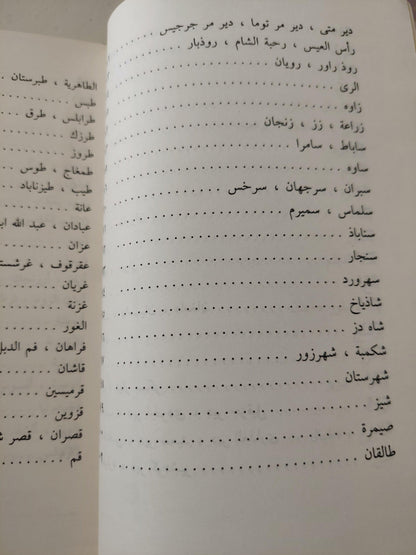 دير متى ، دير مر توما ، دير مر جرجيس
رأس العيس ، رحبة الشام ، روذبار
روذ راور ، رويان
الرى
زاوه
زراعة ، زز ، زنجان
ساباط ، سامرا
ساوه
سبران ، سرجهان ، سرخس
سلماس ، سميرم
سناباذ
سنجار
سهرورد
شاذياخ
شاه دز
شكمبة ، شهرزور
شهرستان
شيز
صيمرة
طالقان
الطاهرية ، طبرستان
طبس
طرابلس ، طرق
طرزك
طروز
طمغاج ، طوس
طيب ، طيزناباد
عانة
عبادان ، عبد الله
عزان
عقرقوف ، غرشستا
غريان
غزنة
الغور
فراهان ، فم الدبل
قاشان
قرميسين
قزوين
قصران ، قصر
قم